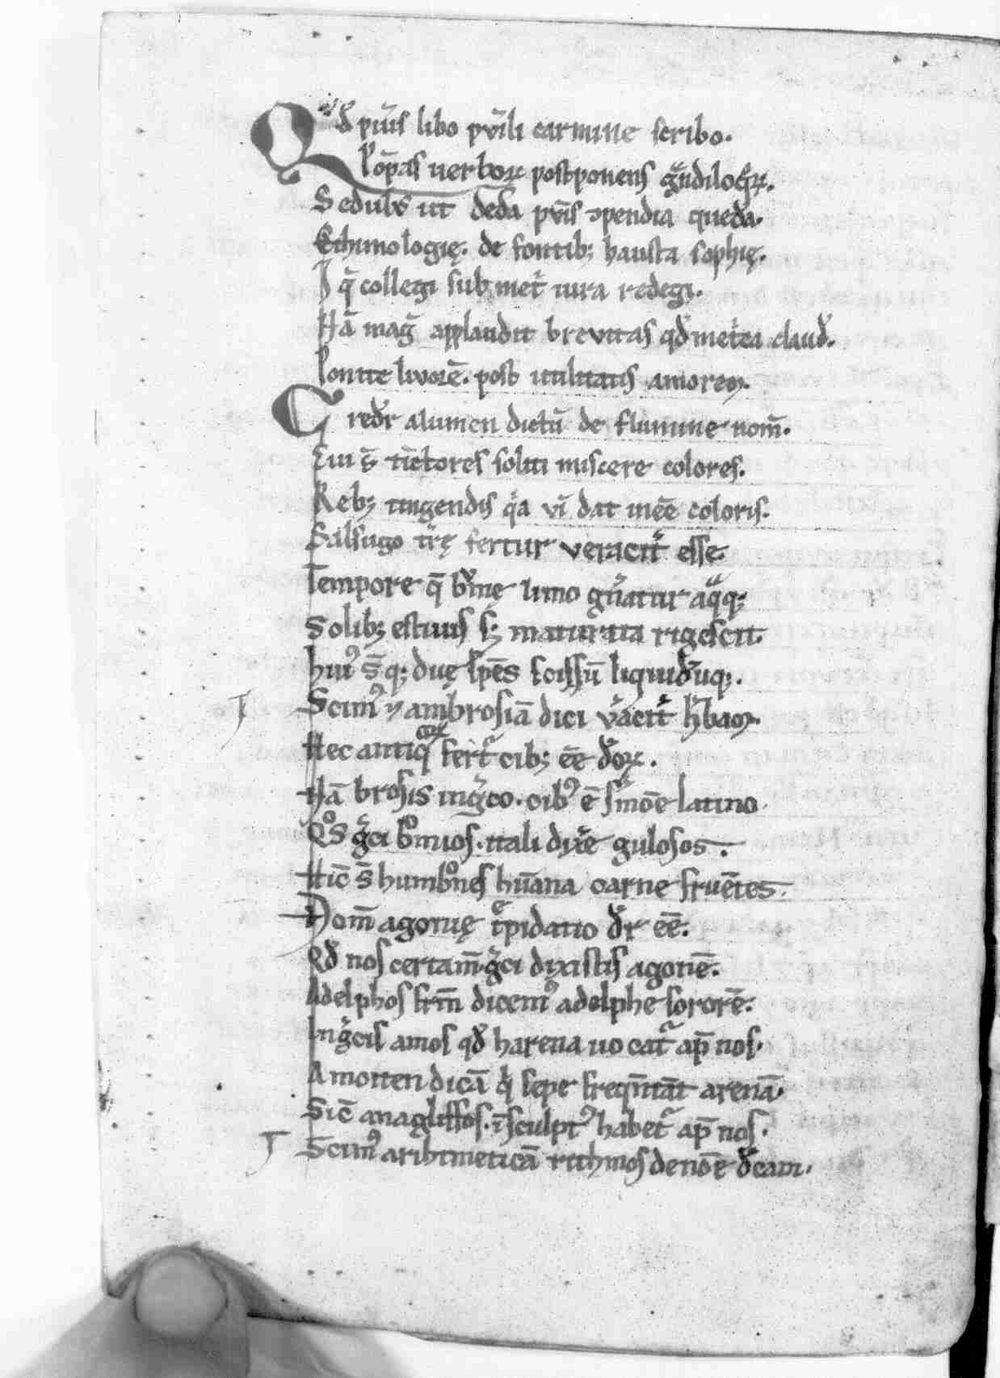 Qd̄ pu͛is libo pu͛ili carmine scribo.
Po͛pas uerboꝝ postponens gᷓndiloqͣꝝ.
Sedulꝰ ut deda pu͛is ꝯpendia queda.
Ethimologię. de fontibꝫ hausta sophię.
I q̄ collegi sub met͛ iura redegi.
Nā mag̃ applaudit breuitas qd̄ met͛ca claud͛.
Ponite liuorē. post utilitatis amorem.
Credr͛ alumen dictū de flumine nom̄.
Cui s̄ tīctores soliti miscere colores.
Rebꝫ tingendis qͣa uī dat ineē coloris.
Salsugo tr͛ę fertur ueracit͛ esse.
Tempore q̄ bͥmę limo gn͛atur aqͣqꝫ
Solibꝫ estiuis sꝫ maturata rigescit.
huiꝰ s̄qꝫ duę spēs scissū liquidūqꝫ.
Scimꝰ ⁊ ambrosiā dici u͛acit͛ h͛bam.
Hec antiqͦꝝ fert͛ cibꝫ eē d͛oꝝ.
Nā brosis ingͣco. cibꝰ ē sm͛oē latino.
Qͦs gͣci bͦmios. itali dix͛e gulosos.
Hic̄ s̄ humbͦnes hūana carne fruētes.
Nom̄ agonię tͤpidatio d͛r eē.
Qd̄ nos certam̄. gͣci dixistis agonē.
Adelphos frm̄ dicemꝰ adelphe sororē.
In gͣcis amos qd̄ harena uocat͛ ap̄ nos.
Amotten dicā qͥ sepe freqn̄tāt arenā.
Sic̄ anagliffos. īsculptꝰ habet͛ ap̄ nos.
Scimꝰ arihtmeticā rithmos de noīe d͛cam.